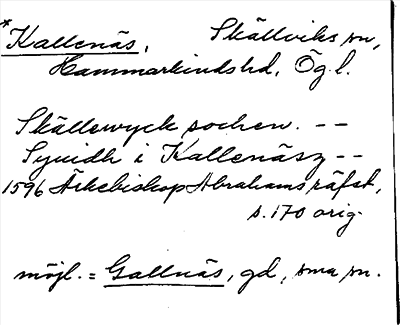 *Kallenäs, Skällviks sn,
Hammarkinds hd, Ög. l.
Skällewyck sochen. --
Synidh i Kallenäsz --
1596 Ärkebiskop Abrahams räfst,
s. 170 orig.
möjl. = Gallnäs, gd, sma sn.